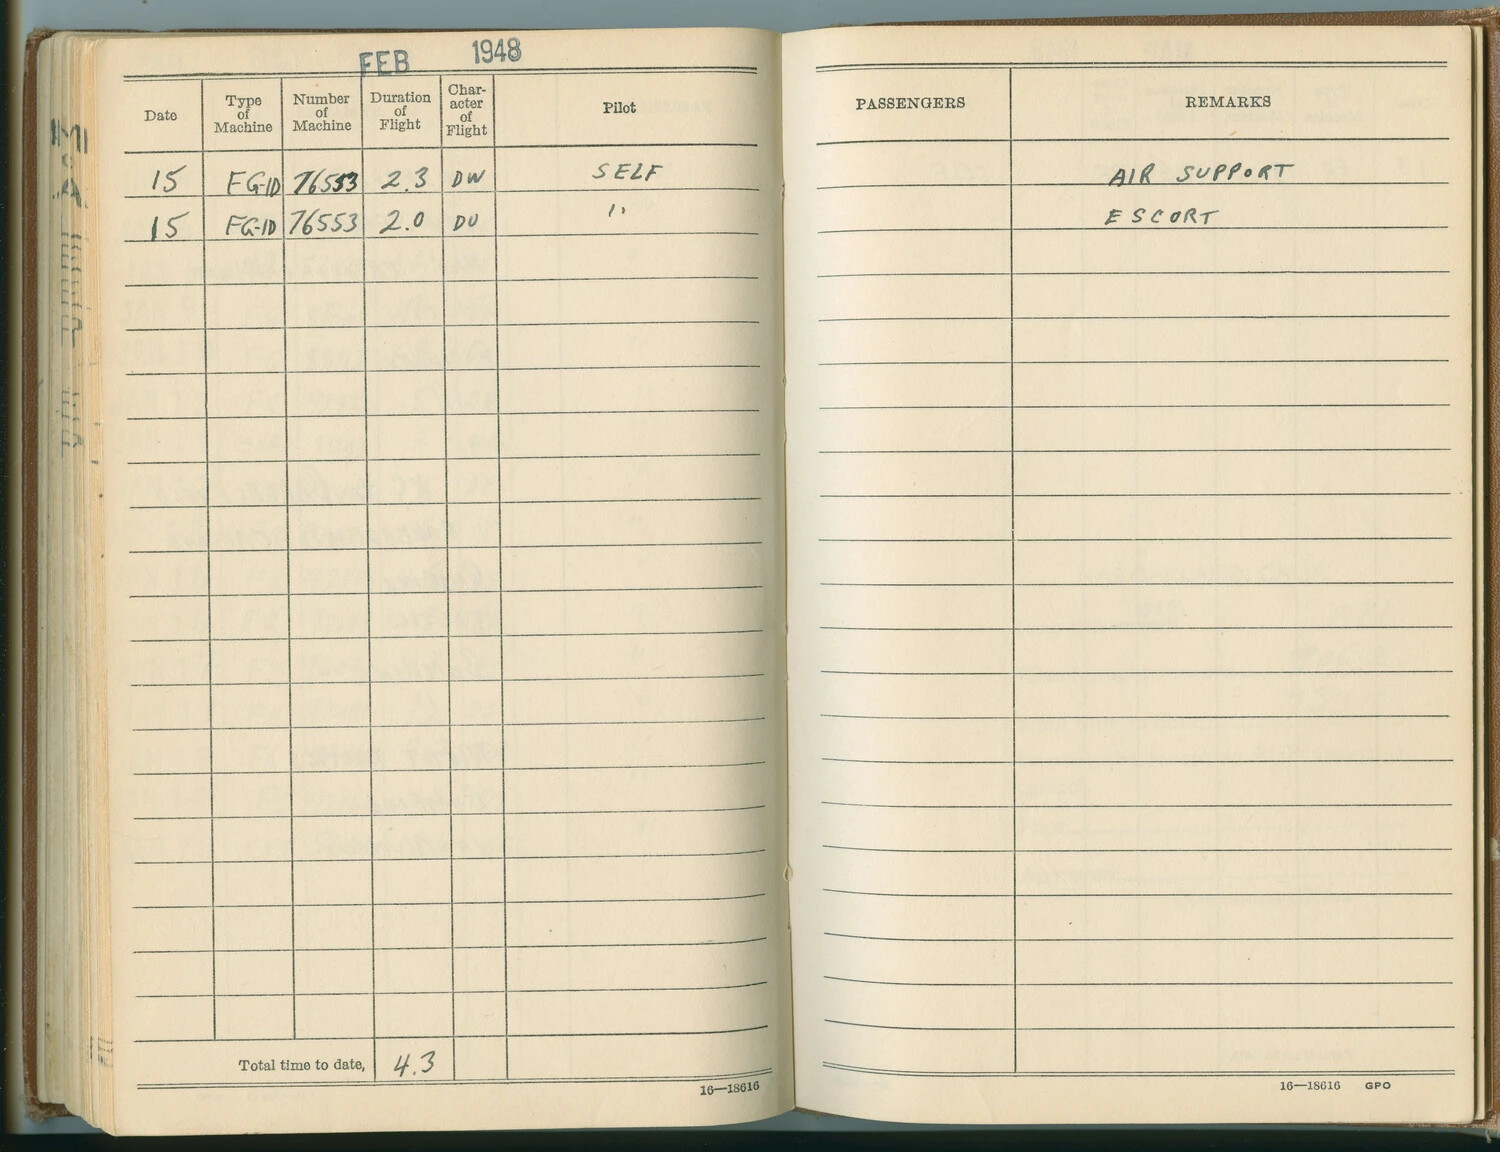 FEB 1948
Date Type of Machine Number of Machine Duration of Flight Char-acter of Flight Pilot PASSENGERS REMARKS
15 FG-1D 76553 2.3 DW SELF AIR SUPPORT
15 FG-1D 76553 2.0 DU " ESCORT
Total time to date, 4.3
16—18616
16—18616 GPO